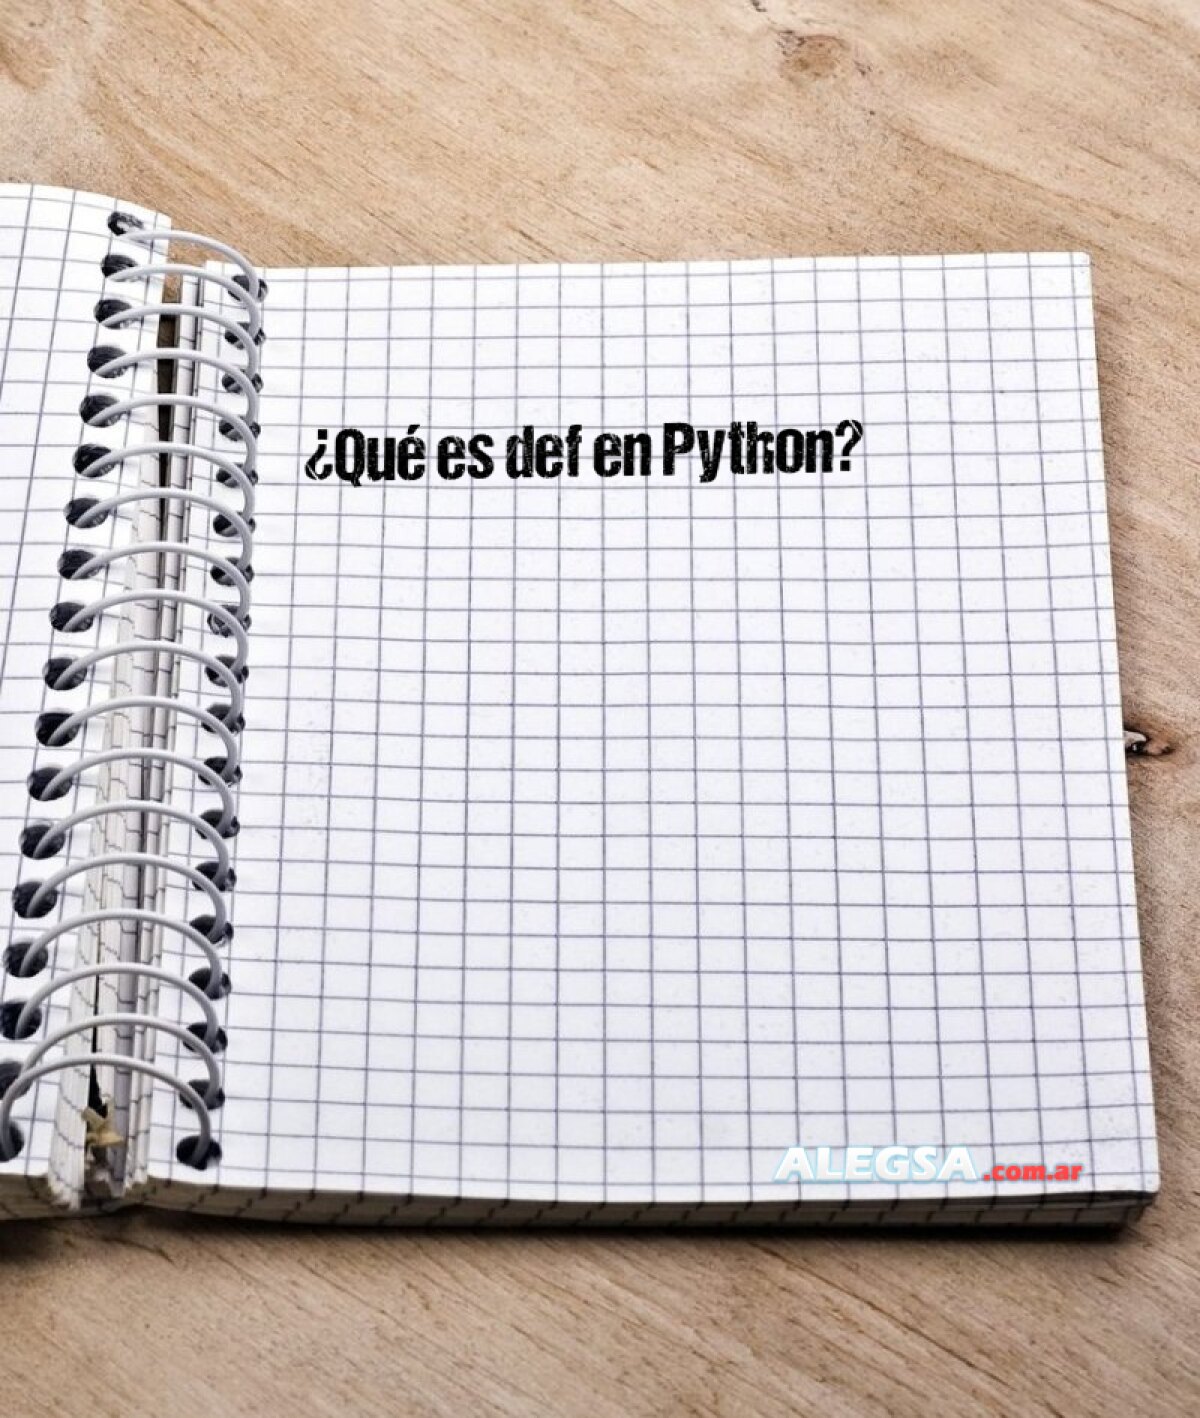 ¿Qué es def en Python?
ALEGSA.com.ar